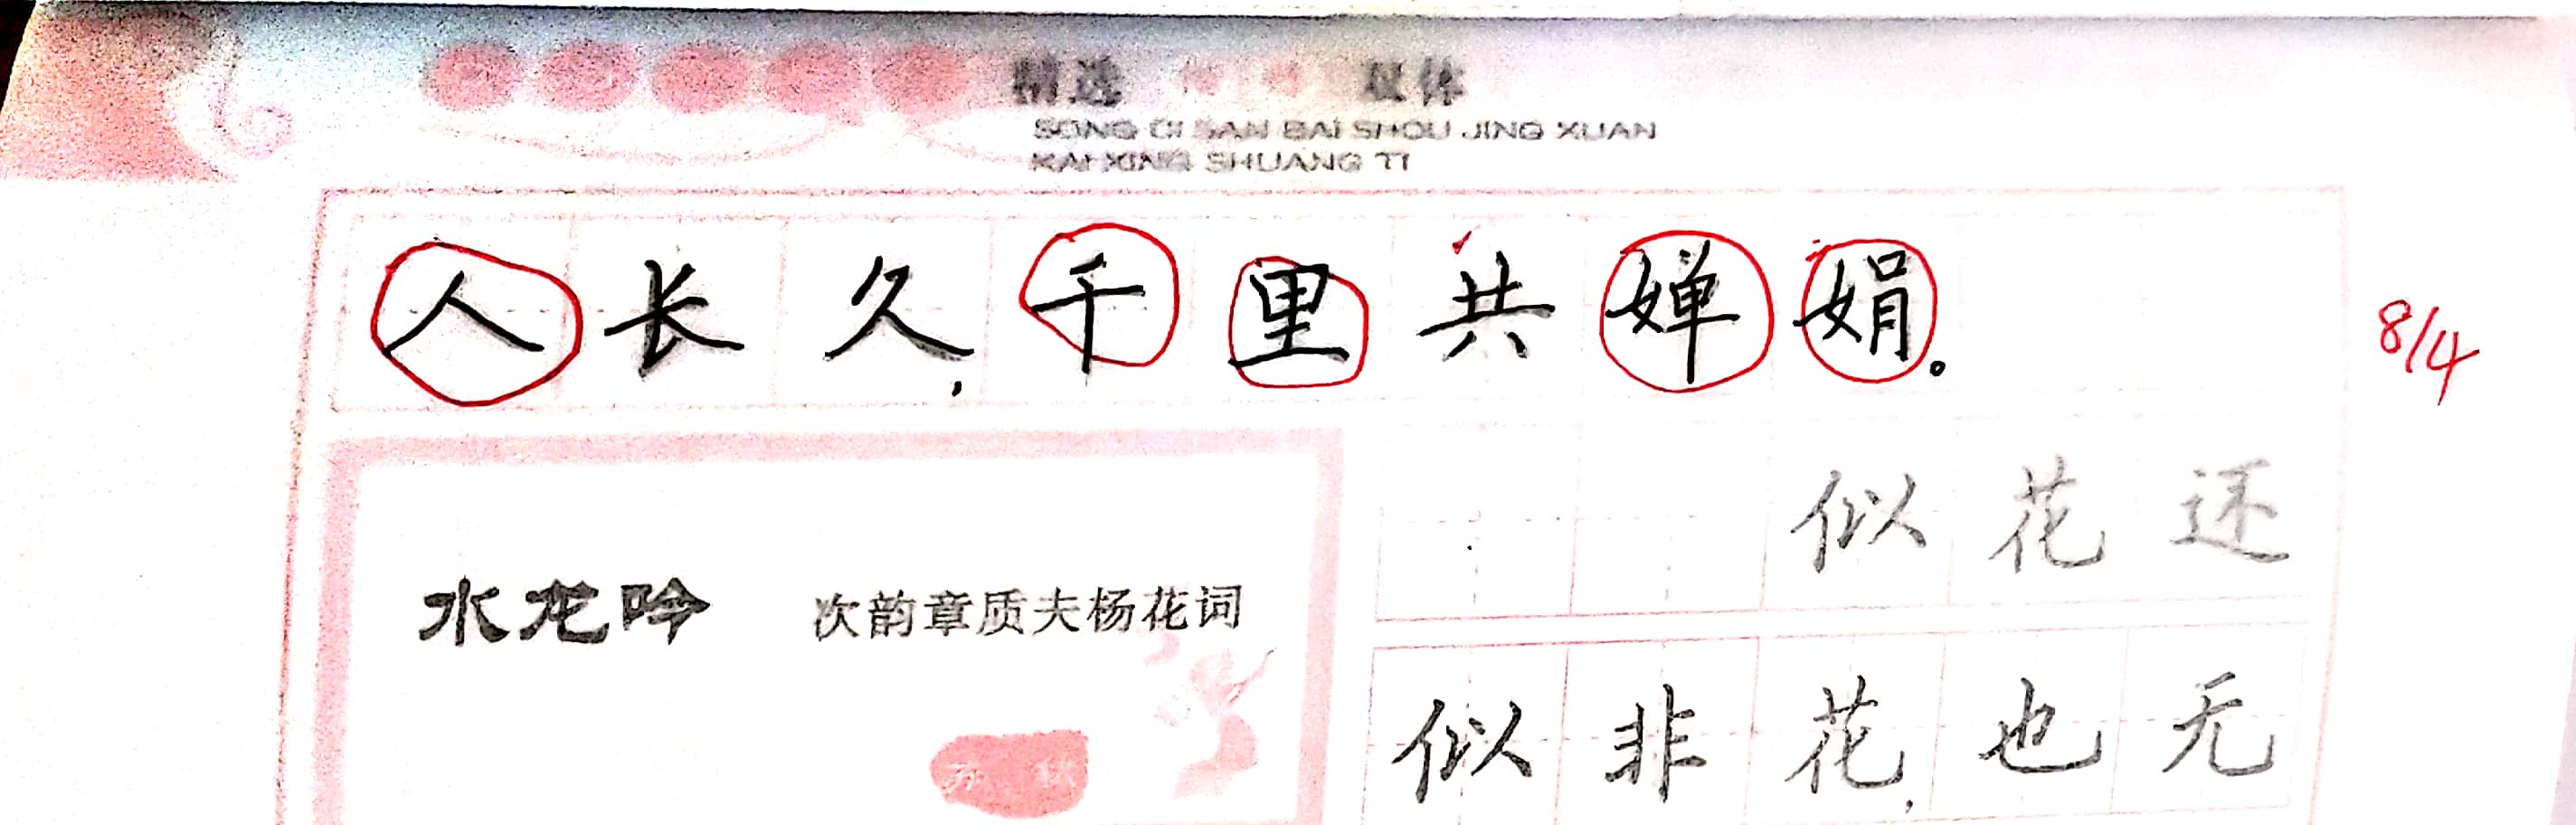 精选 双体
SONG CI SAN BAI SHOU JING XUAN
KAI XING SHUANG TI
人长久,千里共婵娟。
8/4
似花还
水龙吟 次韵章质夫杨花词
似非花,也无